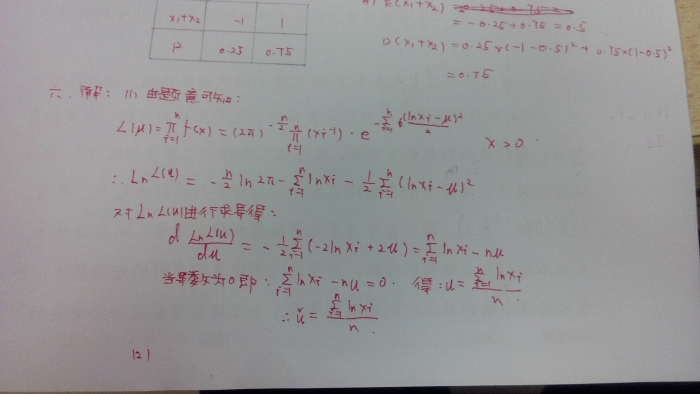 x₁+x₂ -1 1
P 0.25 0.75
E(x₁+x₂) =
= -0.25+0.75 = 0.5
D(x₁+x₂) = 0.25×(-1-0.5)²+0.75×(1-0.5)²
= 0.75
六、解: (1) 由题意可知:
L(μ) = ∏ᵢ₌₁ⁿ f(x) = (2π)^(-n/2) ∏ᵢ₌₁ⁿ (xᵢ⁻¹) · e^(-∑ᵢ₌₁ⁿ (lnxᵢ-μ)²/2) x>0
∴ Ln L(u) = -n/2 ln2π - ∑ᵢ₌₁ⁿ lnxᵢ - 1/2 ∑ᵢ₌₁ⁿ (lnxᵢ-μ)²
对LnL(u)进行求导得:
d LnL(u)/du = -1/2 ∑ᵢ₌₁ⁿ (-2lnxᵢ+2u) = ∑ᵢ₌₁ⁿ lnxᵢ - nu
当导数为0即: ∑ᵢ₌₁ⁿ lnxᵢ - nu = 0. 得: u = ∑ᵢ₌₁ⁿ lnxᵢ / n
∴ û = ∑ᵢ₌₁ⁿ lnxᵢ / n.
(2)